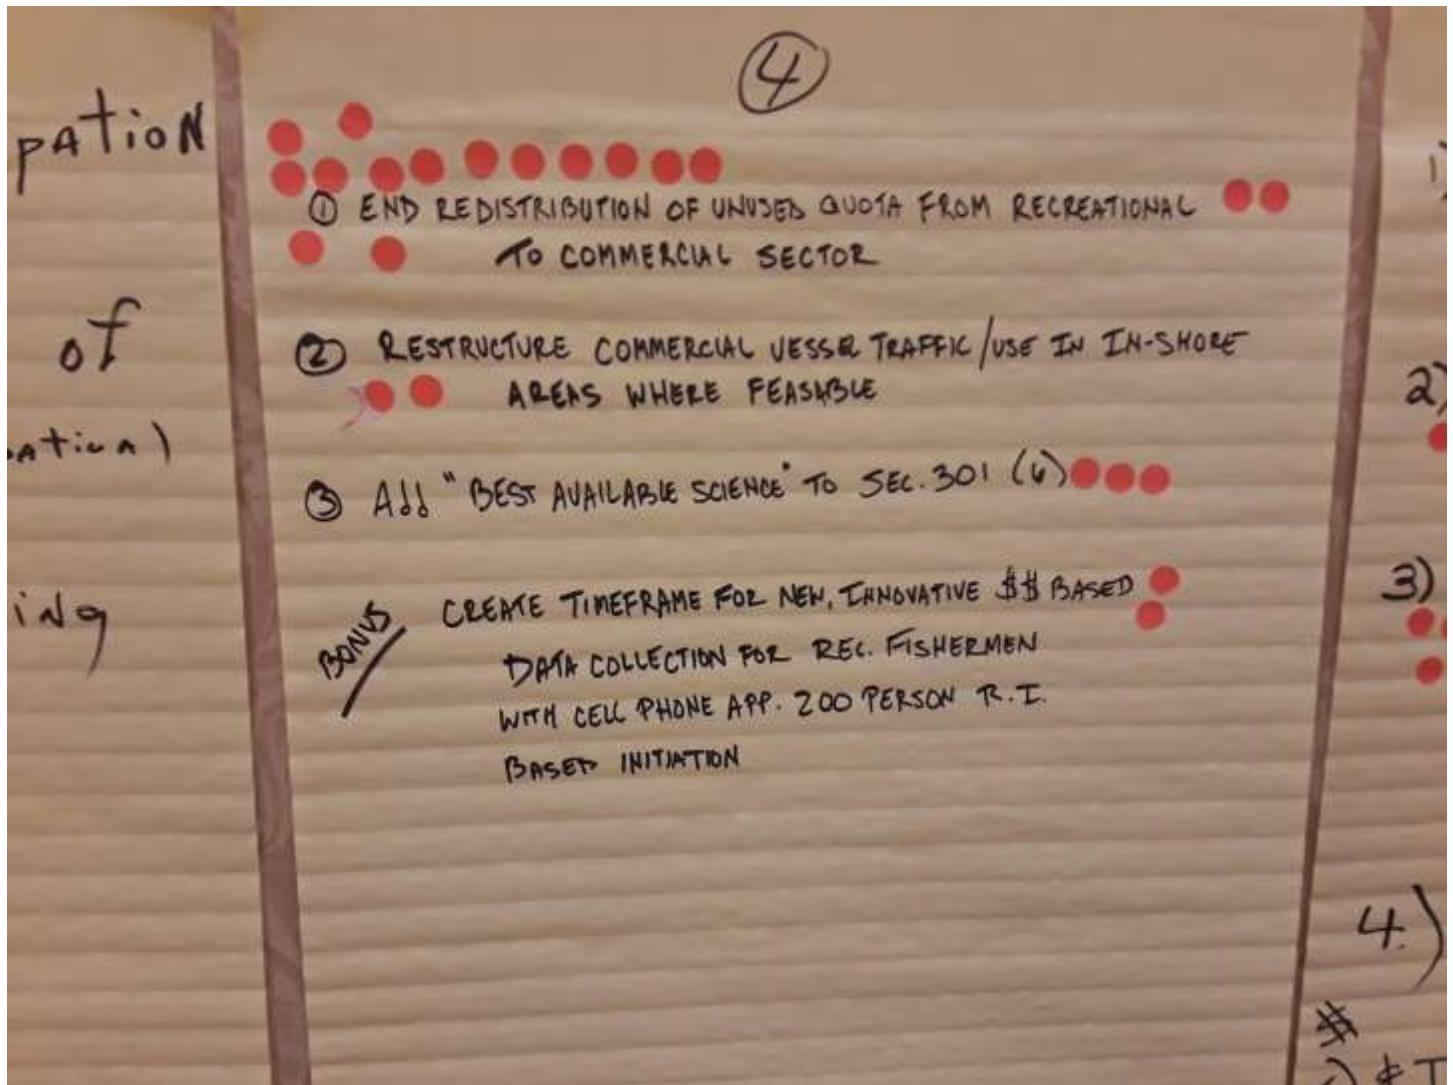 pation
of
ational)
ing
4
① END REDISTRIBUTION OF UNUSED QUOTA FROM RECREATIONAL
TO COMMERCIAL SECTOR
② RESTRUCTURE COMMERCIAL VESSEL TRAFFIC/USE IN IN-SHORE
AREAS WHERE FEASABLE
③ Add "BEST AVAILABLE SCIENCE" TO SEC. 301 (6)
BONUS
CREATE TIMEFRAME FOR NEW, INNOVATIVE $$ BASED
DATA COLLECTION FOR REC. FISHERMEN
WITH CELL PHONE APP. 200 PERSON R.I.
BASED INITIATION
1)
2)
3)
4.)
$